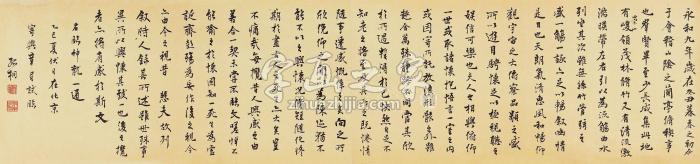 永和九年歲在癸丑暮春之初會
于會稽山陰之蘭亭脩稧事
也羣賢畢至少長咸集此地
有峻領茂林脩竹又有清流激
湍暎帶左右引以為流觴曲水
列坐其次雖無絲竹管弦之
盛一觴一詠亦足以暢敘幽情
是日也天朗氣清惠風和暢仰
觀宇宙之大俯察品類之盛
所以遊目騁懷足以極視聽之
娛信可樂也夫人之相與俯仰
一世或取諸懷抱悟言一室之內
或因寄所託放浪形骸之外雖
趣舍萬殊靜躁不同當其欣
於所遇暫得於己快然自足不
知老之將至及其所之既惓情
隨事遷感慨係之矣向之所
欣俛仰之間以為陳迹猶不
能不以之興懷況脩短隨化終
期於盡古人云死生亦大矣豈
不痛哉每攬昔人興感之由
若合一契未嘗不臨文嗟悼不
能喻之於懷固知一死生為虛
誕齊彭殤為妄作後之視今
亦由今之視昔悲夫故列
敘時人錄其所述雖世殊事
異所以興懷其致一也後之攬
者亦將有感於斯文
神龍一通
乙巳夏伏日在北京